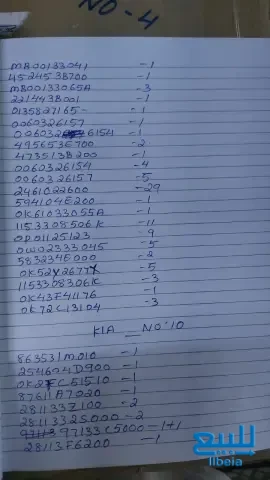 NO-4
MB00133041 -1
452453B700 -1
MB00133065A -3
221443B001 -1
0135827165- -1
0060326157 -1
0060326154 -1
495653E700 -2
473513B200 -1
0060326154 -4
0060326157 -5
2461022600 -29
594104E200 -1
0K61033055A -1
1153308506K -11
0D01125123 -9
0W02333045 -5
583234E000 -2
0K52Y2677X -5
1153308306K -3
0K43F41176 -1
0K72C13104 -3
KIA NO:10
863531M010 -1
254604D900 -1
0K2FC51510 -1
87611A7020 -1
281133Z100 -2
281132S000 -2
97133C5000 -1+1
28113F6200 -1
للبيع
libeia